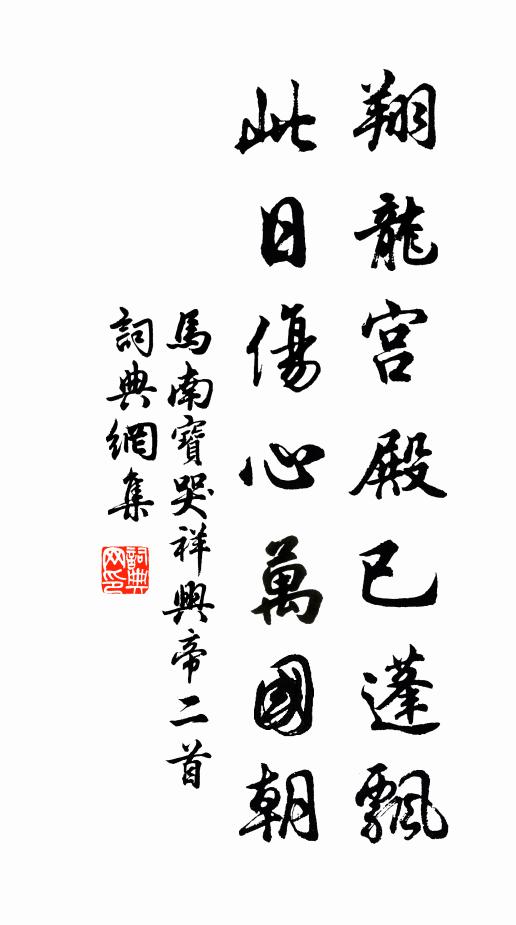 翔龍宮殿已蓬飄
此日傷心萬國朝
馬南寶哭祥興帝二首
詞典網集
詞典網印